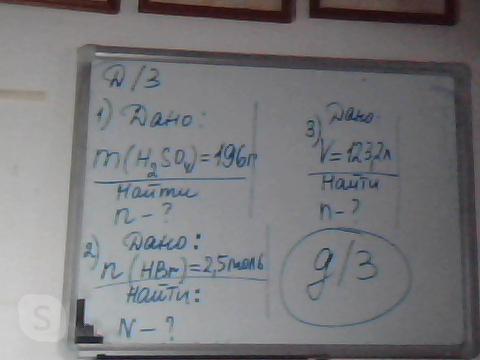 Д/З
1) Дано:
m(H₂SO₄)=196г
Найти
n - ?
2) Дано:
n(HBr)=2,5моль
Найти:
N - ?
3) Дано
V=123,2л
Найти
n - ?
д/З
S